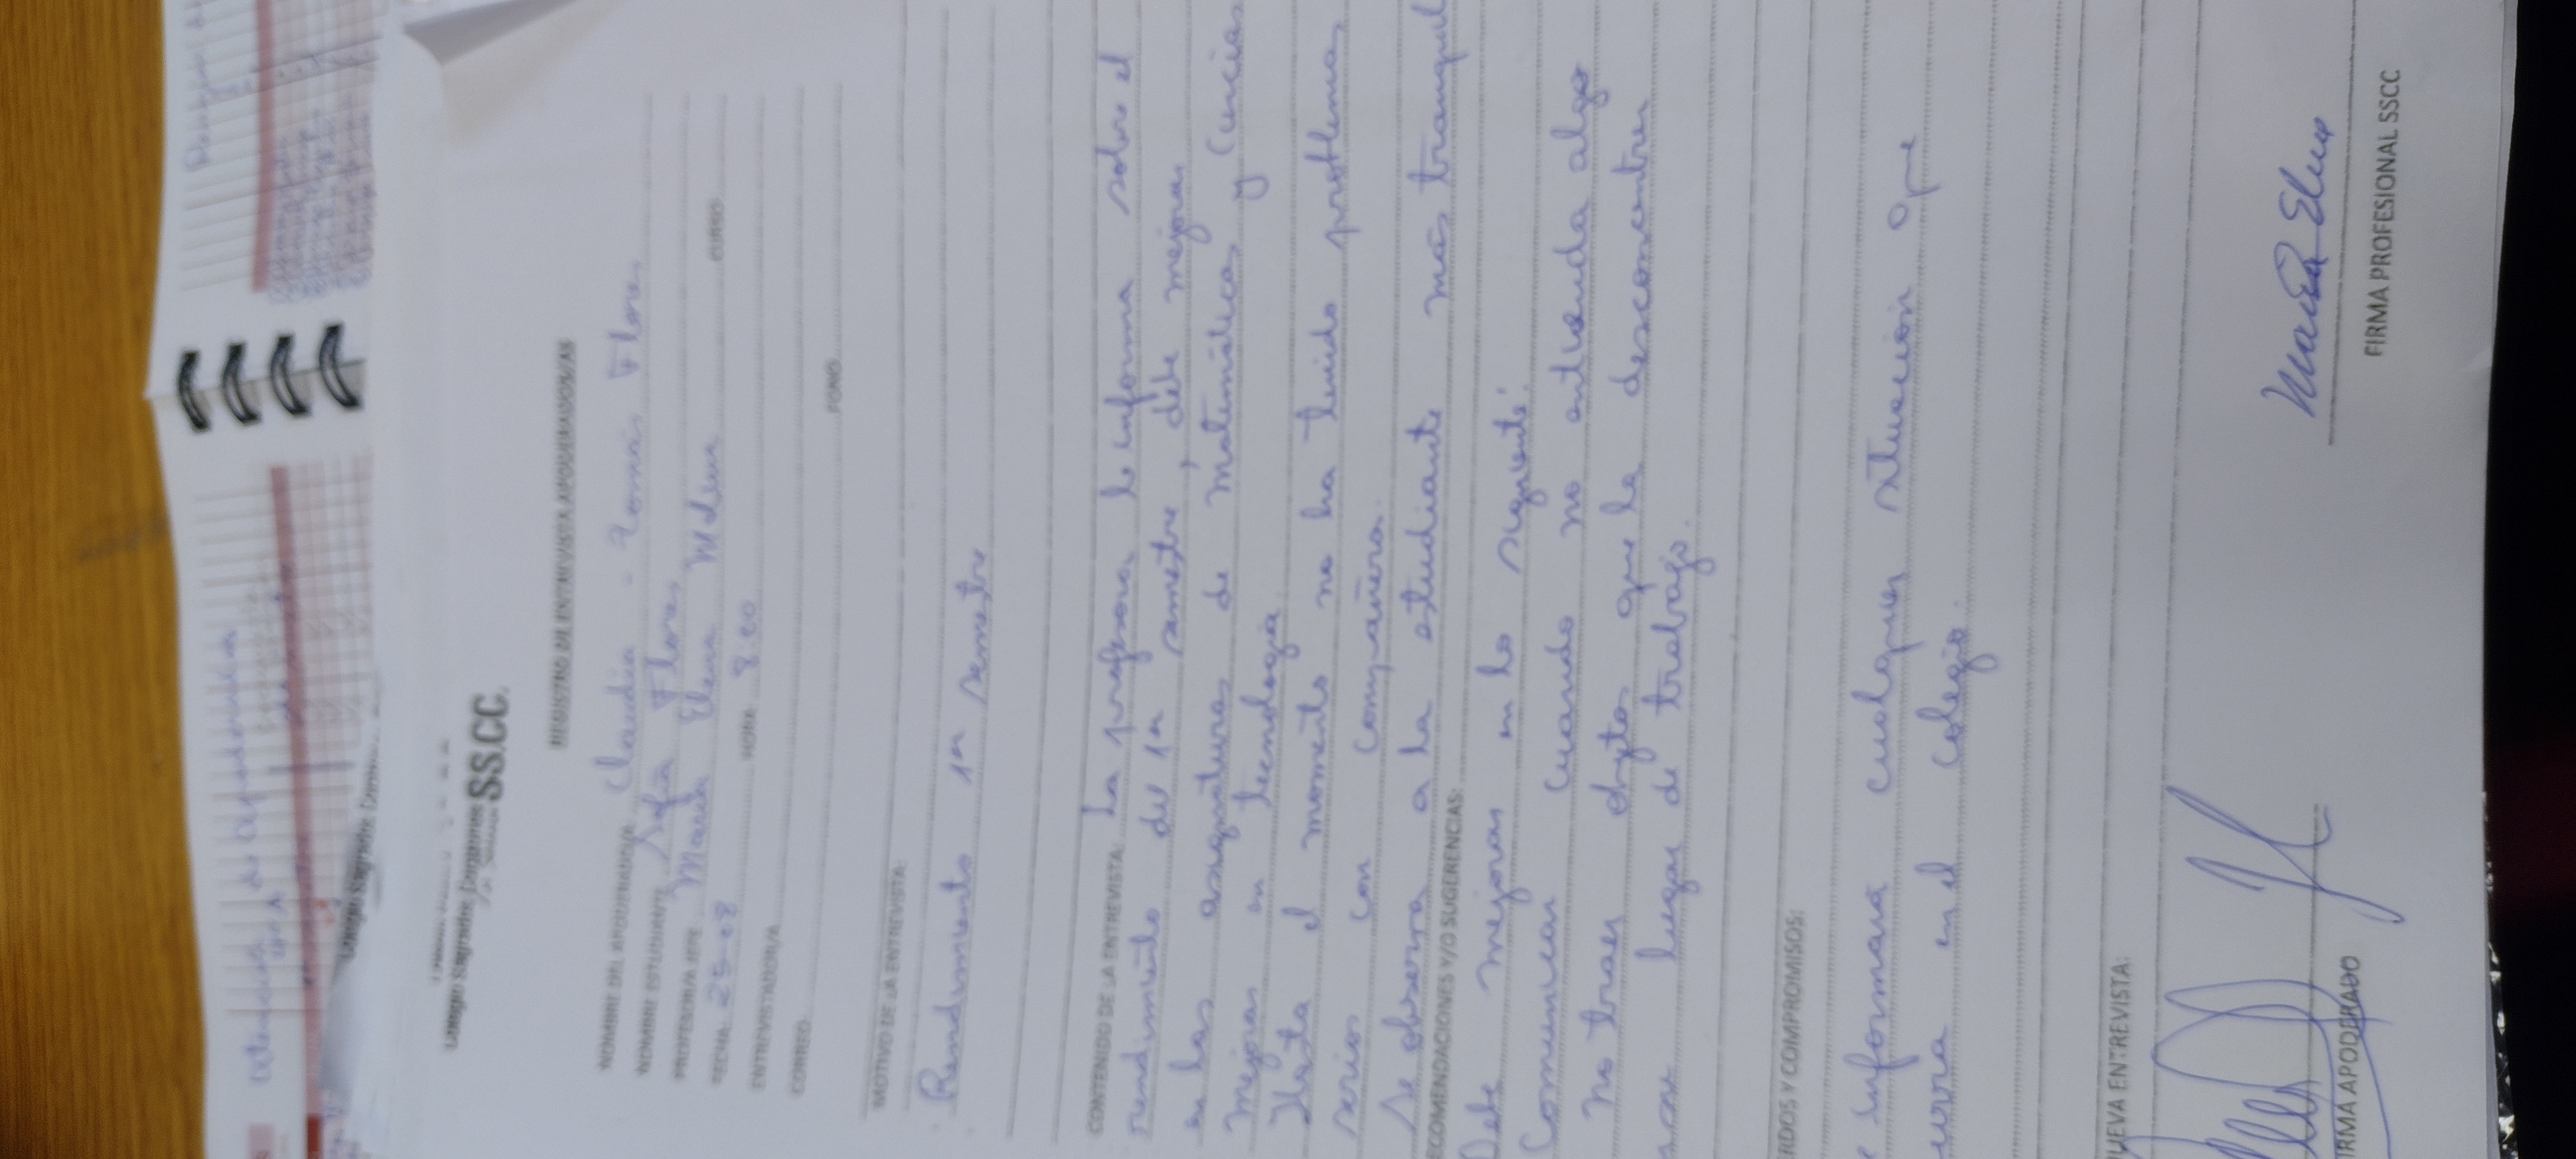 Colegio Sagrados Corazones SS.CC.
REGISTRO DE ENTREVISTA APODERADOS/AS
NOMBRE DEL APODERADO/A Claudia - Tomás Flores
NOMBRE ESTUDIANTE Sofía Flores
PROFESOR/A JEFE María Elena CURSO
FECHA 25-08 HORA 8:00
ENTREVISTADOR/A
CORREO FONO
MOTIVO DE LA ENTREVISTA:
Rendimiento 1er semestre
CONTENIDO DE LA ENTREVISTA: La profesora le informa sobre el
rendimiento del 1er semestre, debe mejorar
en las asignaturas de matemáticas y Ciencias
Mejoras en tecnología.
Hasta el momento no ha tenido problemas
serios con compañero.
Se observa a la estudiante más tranquil
ECOMENDACIONES Y/O SUGERENCIAS:
Debe mejorar en lo siguiente:
Comunicar cuando no entienda algo
No traer objetos que la desconcentren
en lugar de trabajo.
RDOS Y COMPROMISOS:
e informará cualquier situación que
urra en el colegio.
UEVA ENTREVISTA:
María Elena
IRMA APODERADO FIRMA PROFESIONAL SSCC